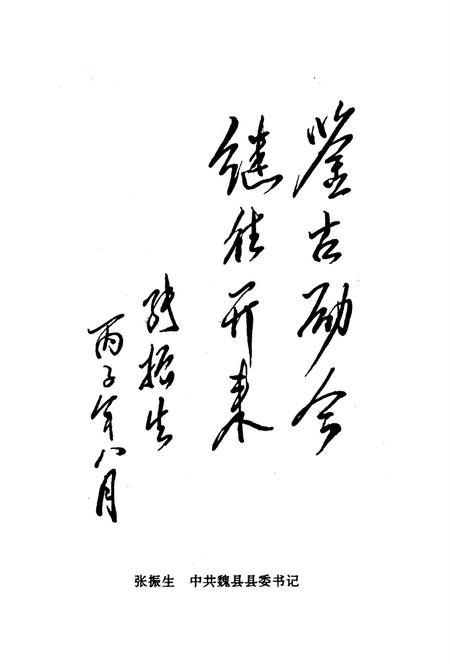 鉴古励今
继往开来
张振生
丙子年八月
张振生 中共魏县县委书记